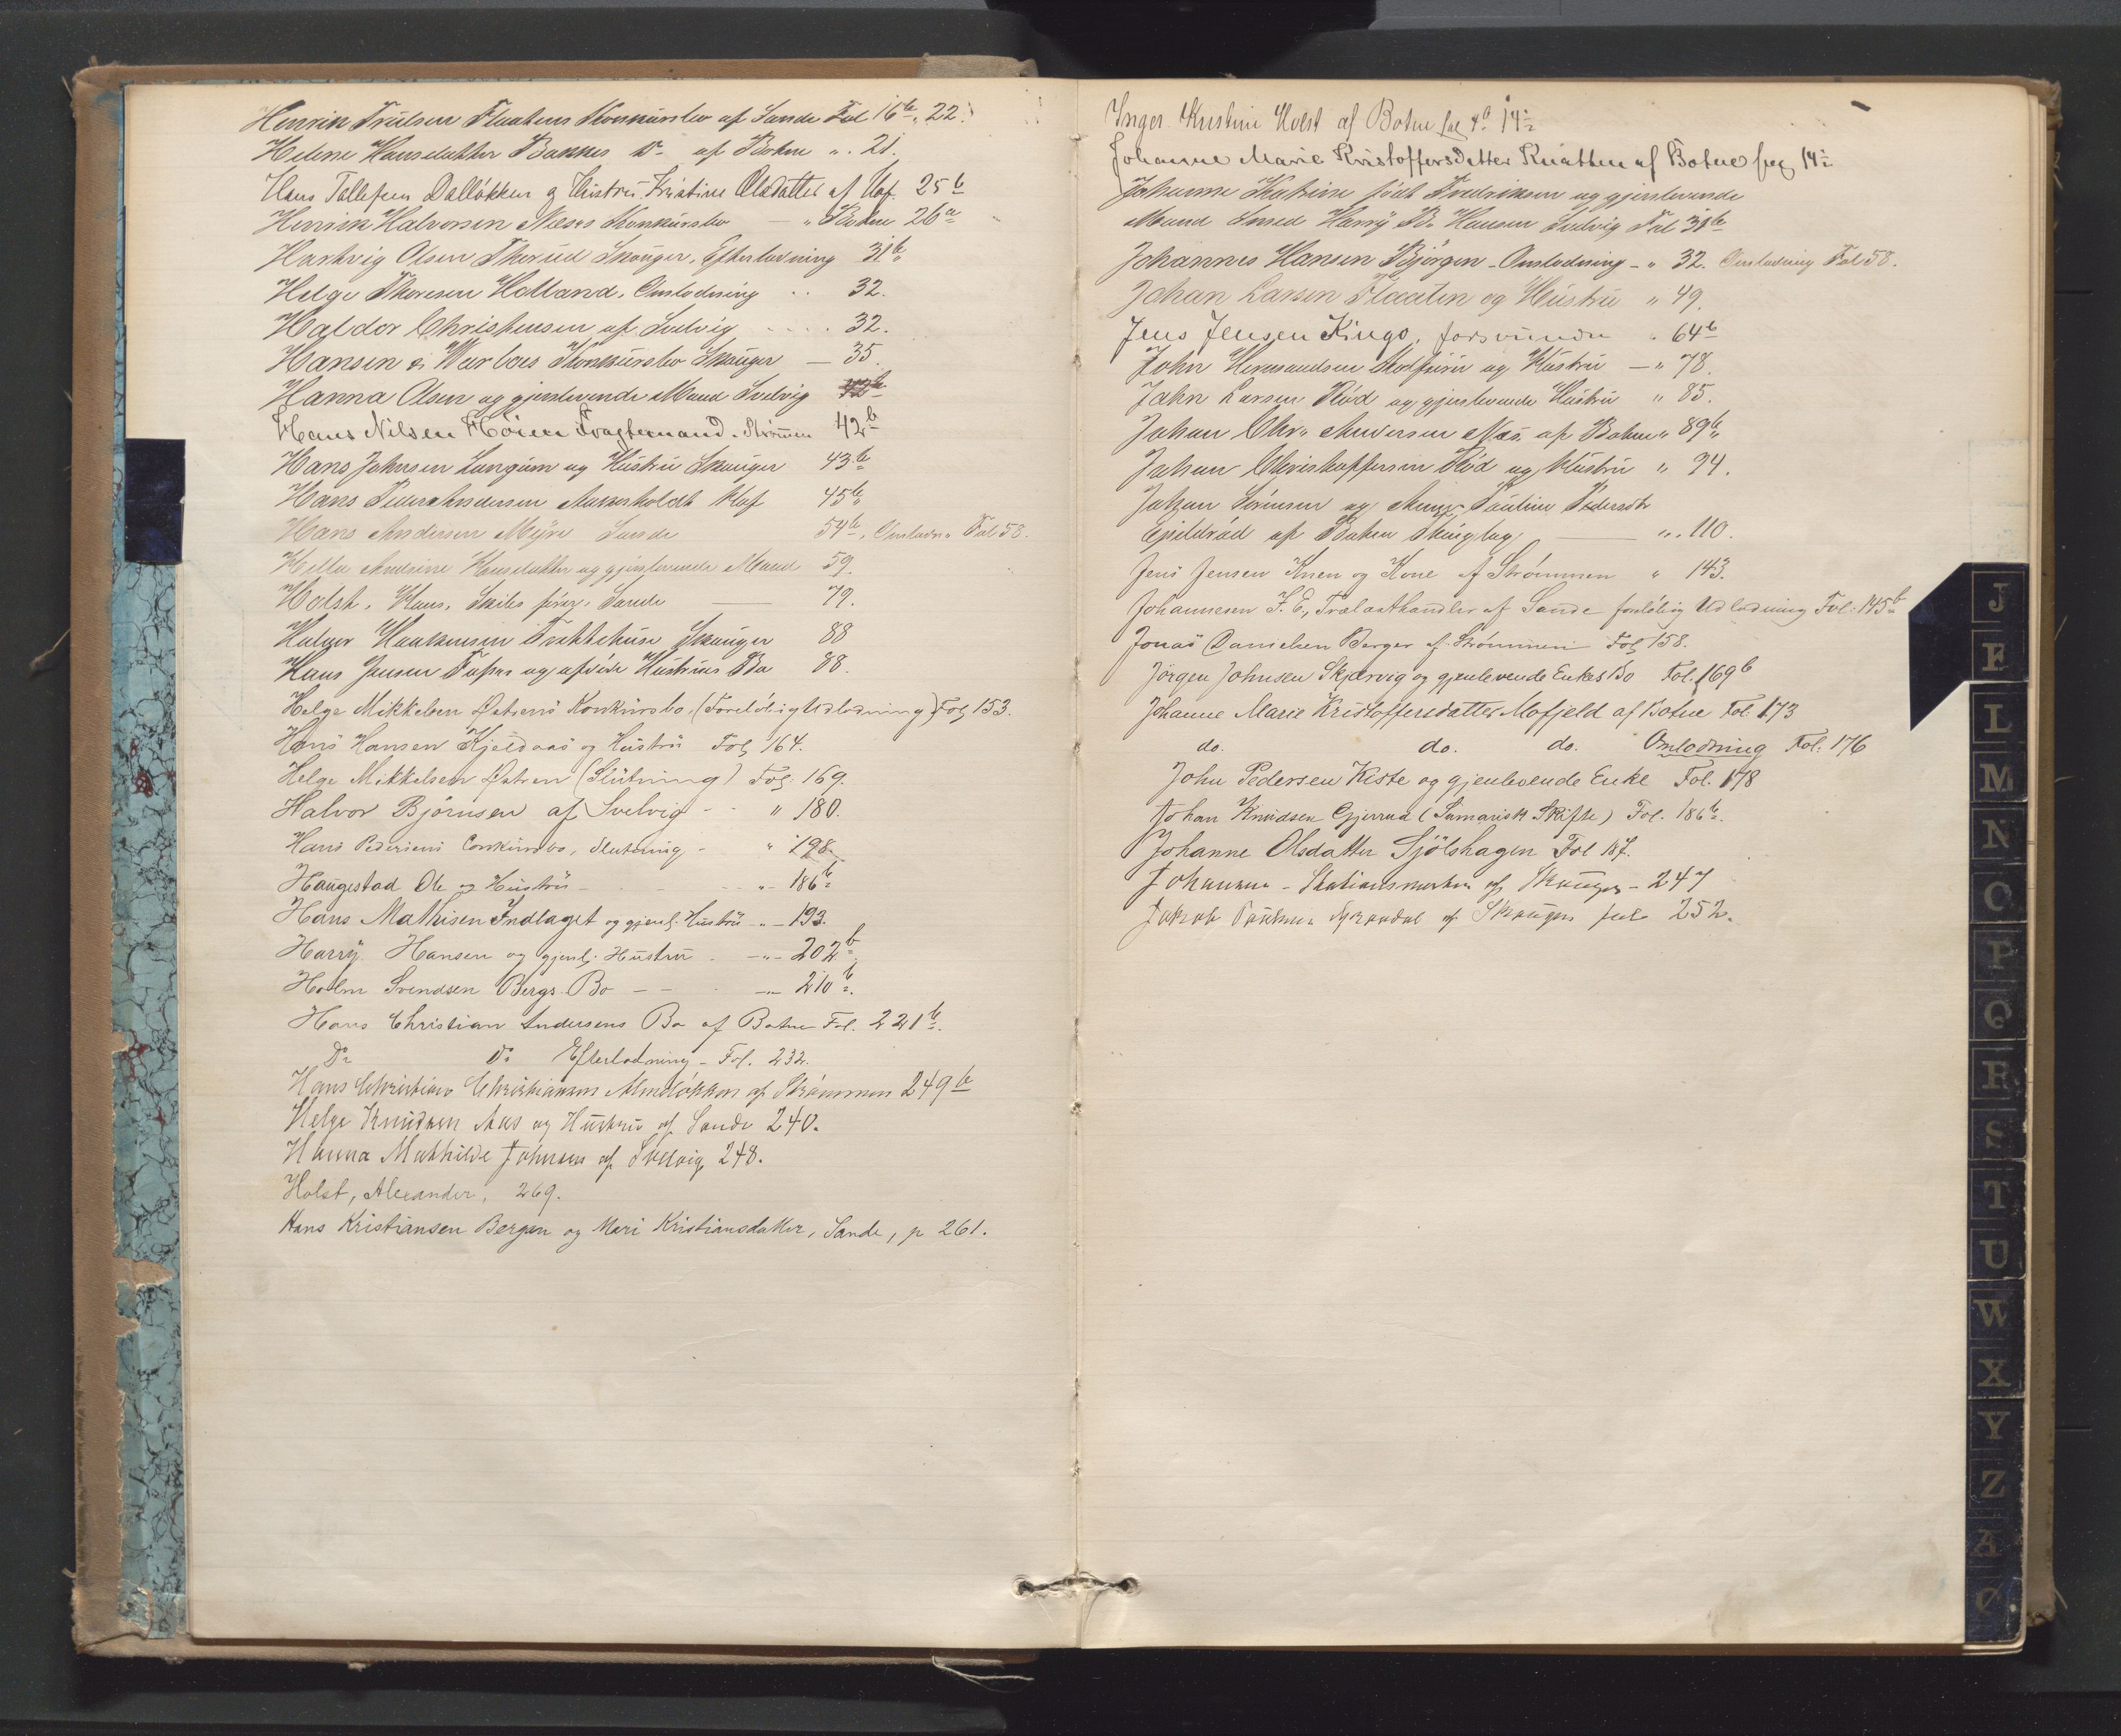 Henrik Trulsen Flaatens Konkursbo af Sande Fol 16b, 22.
Helene Hansdatter Bakkes Do af Botne " 21.
Hans Tollefsen Dalløkken & Hustru Kristine Olsdatter af Hof. 25b
Henrik Halvorsen Næss Konkursbo — " Botne 26a
Hartvig Olsen Skouger, Efterlodning 31b
Helge Thoresen Holland, Omlodning " 32.
Haldor Christensen af Svelvig 32.
Hansen & Konkursbo Skouger — 35.
Hanna Olsen og gjenlevende Mand Svelvig
Hans Nilsen Høien Fragtemand. Strømmen 42b
Hans Johnsen Langum og Hustru Skouger 43b
Hans Pedersen Hof 45b
Hans Andersen Myre Sande 54b, Omlodn. Fol 58.
Andrine Hansdatter og gjenlevende Mand 59.
Holst, Hans, Sande — 79.
Skouger 88
Hans Jensen og afdøde Hustrus Bo 88.
Helge Mikkelsen Østrens Konkursbo, (Foreløbig Udlodning) Fol. 153.
Hans Hansen Kjeldaas og Hustru Fol. 164.
Helge Mikkelsen Østren (Slutning) Fol. 169.
Halvor Bjørnsen af Svelvig - " 180.
Hans Pedersens Conkursbo, Slutning - " 198
Haugestad Ole og Hustru - " - 186b
Hans Mathisen Indlaget og gjenl. Hustru - " - 193.
Harry Hansen og gjenl. Hustru - " - 202b
Holm Svendsen Bergs Bo - - " 210b.
Hans Christian Andersens Bo af Botne Fol. 221b.
Do Do Efterlodning - Fol. 232.
Hans Christian Christiansen af Strømmen 249b
Helge Knudsen Aas og Hustru af Sande 240.
Hanna Mathilde Johnsen af Svelvig 248.
Holst, Alexander, 269.
Hans Kristiansen Bergan og Mari Kristiansdatter, Sande, p 261.
Inger Kristine Holst af Botne fol 4b 14
Johanne Marie Kristoffersdatter Knatten af Botne fol 14
Johanne Katrine født Fredriksen og gjenlevende
Mand Smed Harry B. Hansen Svelvig Fol 31b
Johannes Hansen Bjørgen - Omlodning - " 32. Omlodning Fol 58.
Johan Larsen Flaaten og Hustru " 49.
Jens Jensen Kings, forsvunden " 64b
John Hermandsen og Hustru — " 78.
John Larsen Rød og gjenlevende Hustru " 85.
Johan Chr. Andersen Næs af Botne " 89b
Johan Christoffersen Rød og Hustru " 94.
Johan Sørensen og Pauline Pedersdtr
af Botne — " 110.
Jens Jensen Knem og Kone af Strømmen " 143.
Johannesen J. E., Trælasthandler af Sande foreløbig Udlodning Fol. 145b
Jonas Danielsen Berger af Strømmen Fol 158.
Jørgen Johnsen Skjærvig og gjenlevende Enkes Bo Fol. 169b
Johanne Marie Kristoffersdatter Mofjeld af Botne Fol. 173
do. do. do. Omlodning Fol. 176
John Pedersen Kiste og gjenlevende Enke Fol. 178
Johan Knudsen Gjerrud (Sumarisk Skifte) Fol. 186b.
Johanne Olsdatter Sjølshagen Fol 187.
Johannesen - Stationsmester af Skouger - 247
Jakob Paulsen af Skouger fol 252.
J
K
L
M
N
O
P
Q
R
S
T
U
W
X
Y
Z
Æ
Ø